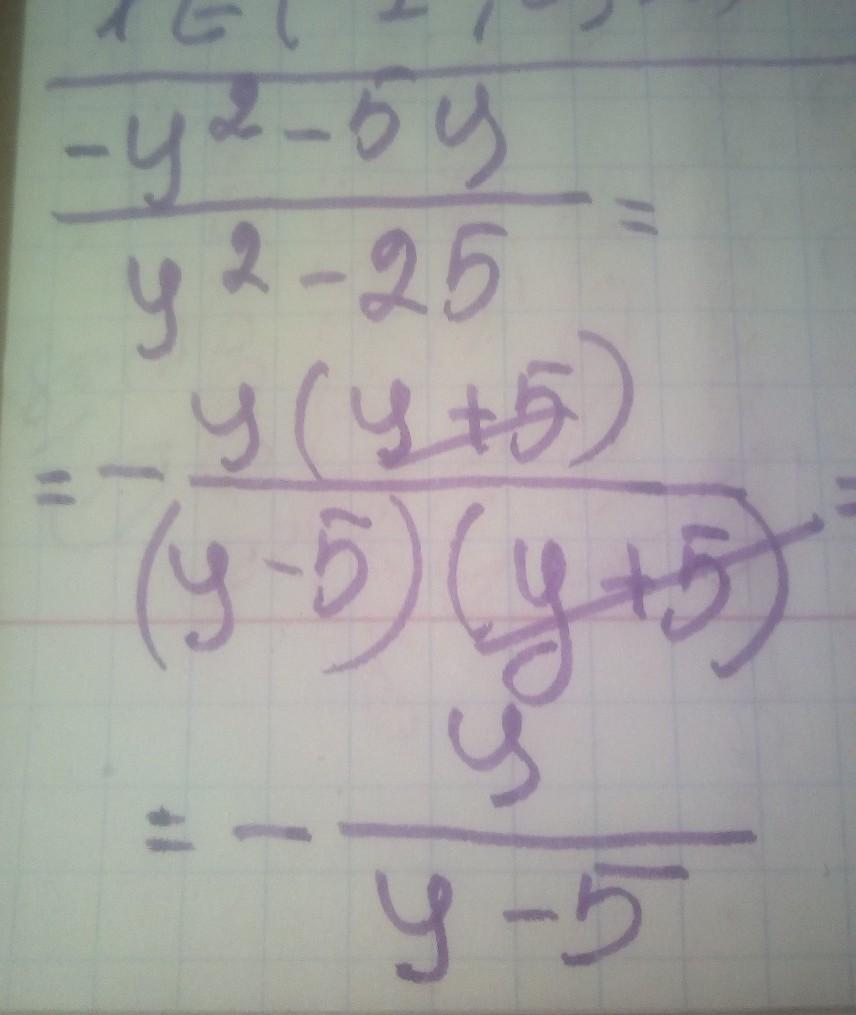 -y²-5y
y²-25 =
= - y(y+5)
(y-5)(y+5) =
= - y
y-5